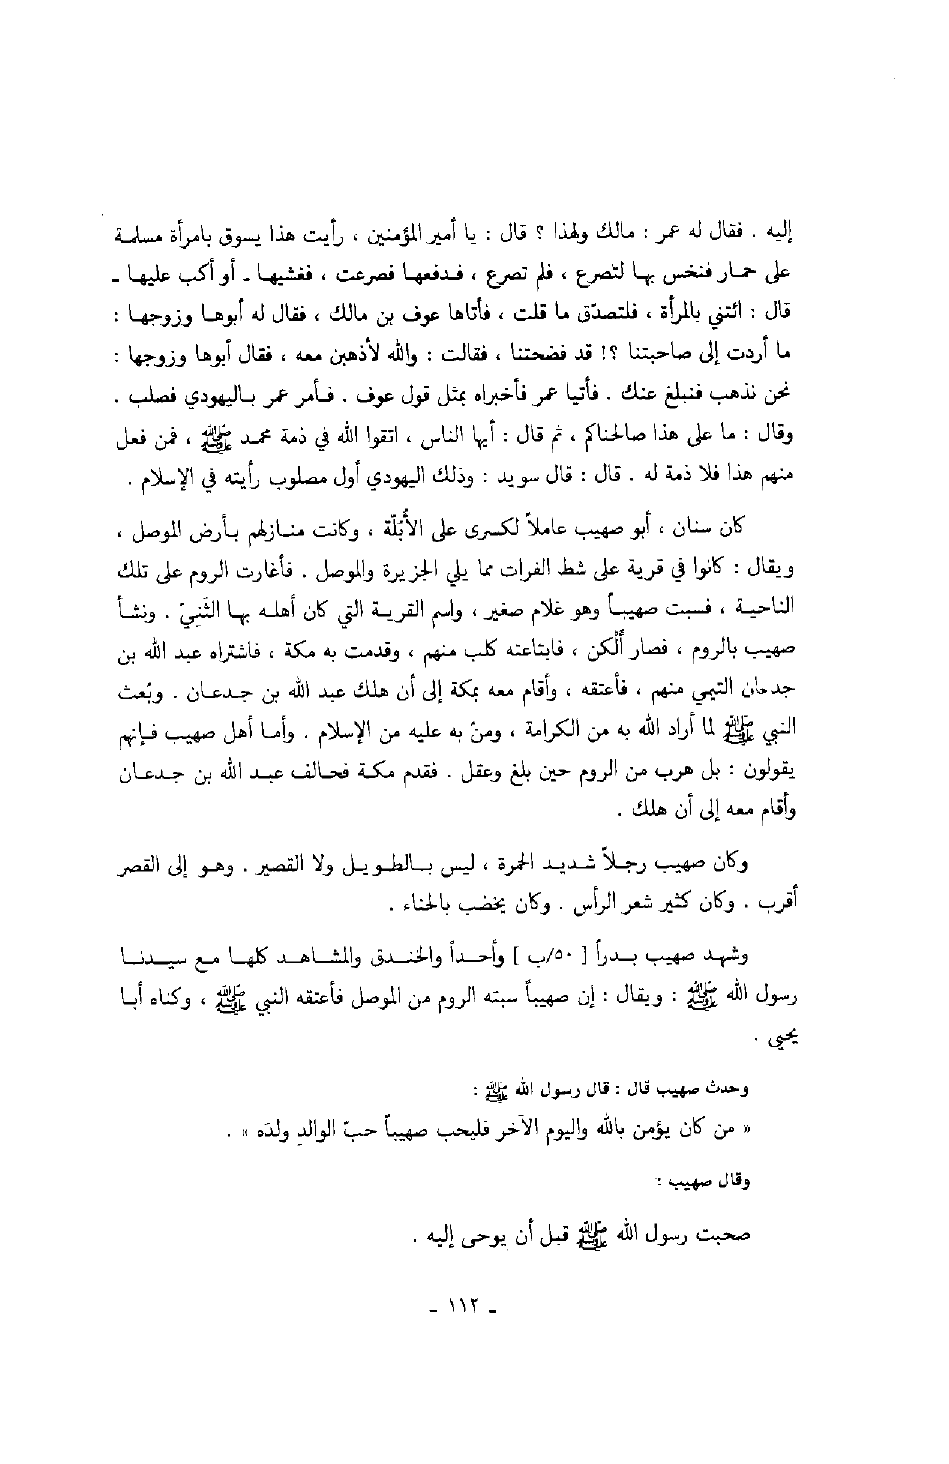 إليه . فقال له عمر : مالك ولهذا ؟ قال : يا أمير المؤمنين ، رأيت هذا يسوق بامرأة مسلمة
على حمار فنخس بها لتصرع ، فلم تصرع ، فدفعها فصرعت ، فغشيها ـ أو أكب عليها ـ
قال : ائتني بالمرأة ، فلتصدّق ما قلت ، فأتاها عوف بن مالك ، فقال له أبوها وزوجها :
ما أردت إلى صاحبتنا ؟! قد فضحتنا ، فقالت : والله لأذهبن معه ، فقال أبوها وزوجها :
نحن نذهب فنبلغ عنك . فأتيا عمر فأخبراه بمثل قول عوف . فأمر عمر باليهودي فصلب .
وقال : ما على هذا صالحناكم ، ثم قال : أيها الناس ، اتقوا الله في ذمة محمد ﷺ ، فمن فعل
منهم هذا فلا ذمة له . قال : قال سويد : وذلك اليهودي أول مصلوب رأيته في الإسلام .
كان سنان ، أبو صهيب عاملاً لكسرى على الأُبُلّة ، وكانت منازلهم بأرض الموصل ،
ويقال : كانوا في قرية على شط الفرات مما يلي الجزيرة والموصل . فأغارت الروم على تلك
الناحية ، فسبت صهيباً وهو غلام صغير ، واسم القرية التي كان أهله بها الثَنِيّ . ونشأ
صهيب بالروم ، فصار ألكن ، فابتاعته كلب منهم ، وقدمت به مكة ، فاشتراه عبد الله بن
جدعان التيمي منهم ، فأعتقه ، وأقام معه بمكة إلى أن هلك عبد الله بن جدعان . وبُعث
النبي ﷺ لما أراد الله به من الكرامة ، ومنّ به عليه من الإسلام . وأما أهل صهيب فإنهم
يقولون : بل هرب من الروم حين بلغ وعقل . فقدم مكة فحالف عبد الله بن جدعان
وأقام معه إلى أن هلك .
وكان صهيب رجلاً شديد الحمرة ، ليس بالطويل ولا القصير . وهو إلى القصر
أقرب . وكان كثير شعر الرأس . وكان يخضب بالحناء .
وشهد صهيب بدراً [ ٥٠/ب ] وأحداً والخندق والمشاهد كلها مع سيدنا
رسول الله ﷺ : ويقال : إن صهيباً سبته الروم من الموصل فأعتقه النبي ﷺ ، وكناه أبا
يحيى .
وحدث صهيب قال : قال رسول الله ﷺ :
« من كان يؤمن بالله واليوم الآخر فليحب صهيباً حبّ الوالدِ ولدَه » .
وقال صهيب :
صحبت رسول الله ﷺ قبل أن يوحى إليه .
ـ ١١٢ ـ